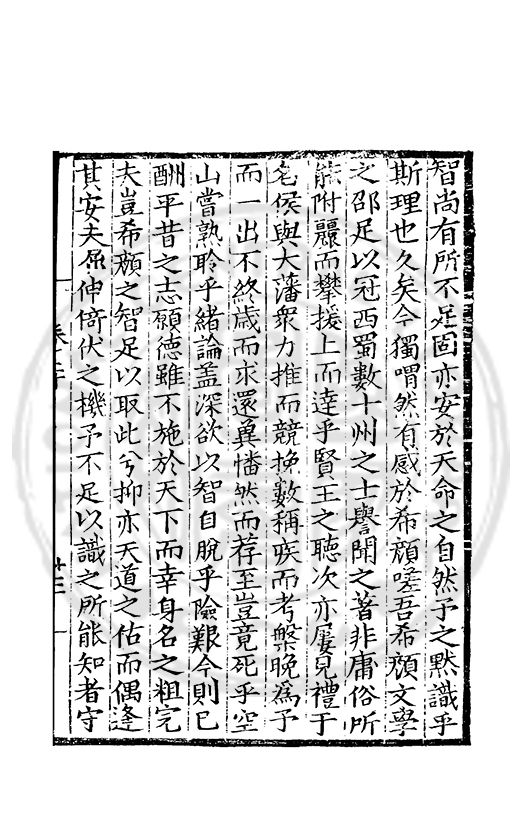 智尚有所不足固亦安於天命之自然予之黙識乎
斯理也久矣今獨喟然有感於希顏嗟吾希顏文學
之邵足以冠西蜀數十州之士譽聞之著非庸俗所
能附麗而攀援上而達乎賢王之聽次亦屢見禮于
名侯與大藩衆力推而競挽數稱疾而考槃晚爲予
而一出不終歲而求還兾幡然而荐至豈竟死乎空
山嘗熟聆乎緒論盖深欲以智自脫乎險艱今則已
酬平昔之志願德雖不施於天下而幸身名之粗完
夫豈希顏之智足以取此兮抑亦天道之佑而偶逢
其安夫屈伸倚伏之機予不足以識之所能知者守